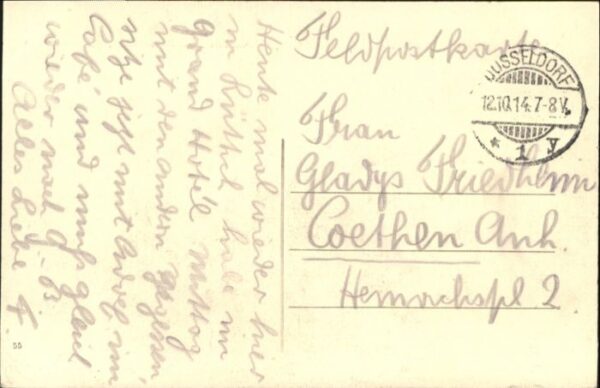 Feldpostkarte
DÜSSELDORF
12.10.14.7-8V.
* 1 y
Frau
Gladys Friedheim
Coethen Anh.
2
Heute mal wieder hier
in Lüttich habe im
Grand Hotel Mittag
mit den andern gegessen,
sitze jetzt mit Adolf im
Café und muß gleich
wieder nach
Alles Liebe F
55